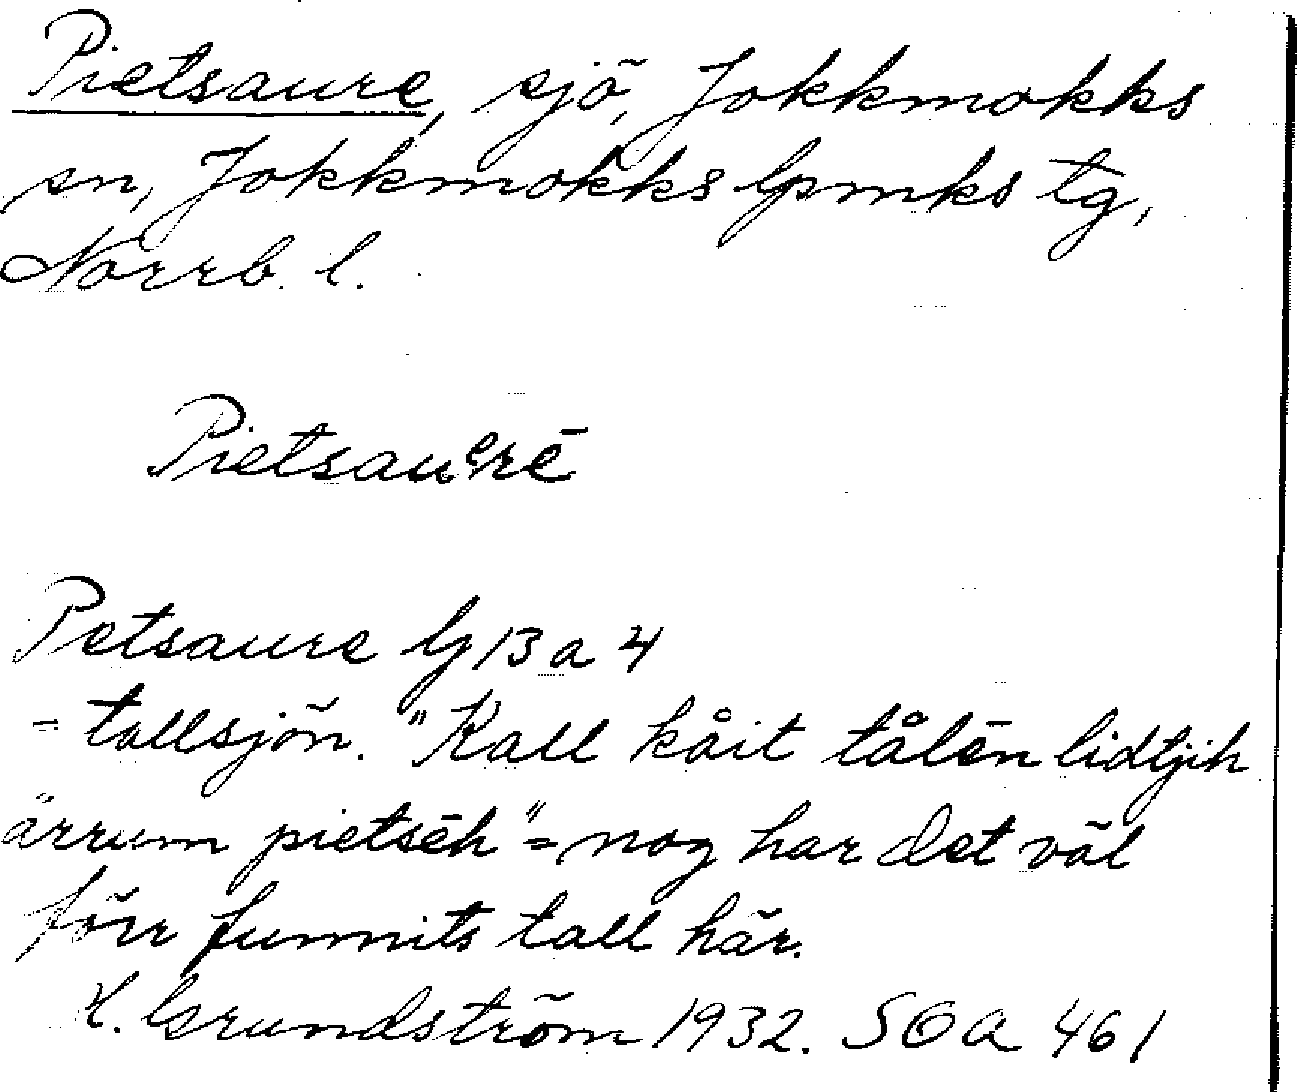 Pietsaure, sjö, Jokkmokks
sn, Jokkmokks lpmks tg,
Norrb. l.
Pietsauᵉrē
Petsaure Gj 13 a 4
= tallsjön. "Kall kåit tålēn lidtjih
ärrum pietsēh" = nog har det väl
förr funnits tall här.
H. Grundström 1932. SOA 461